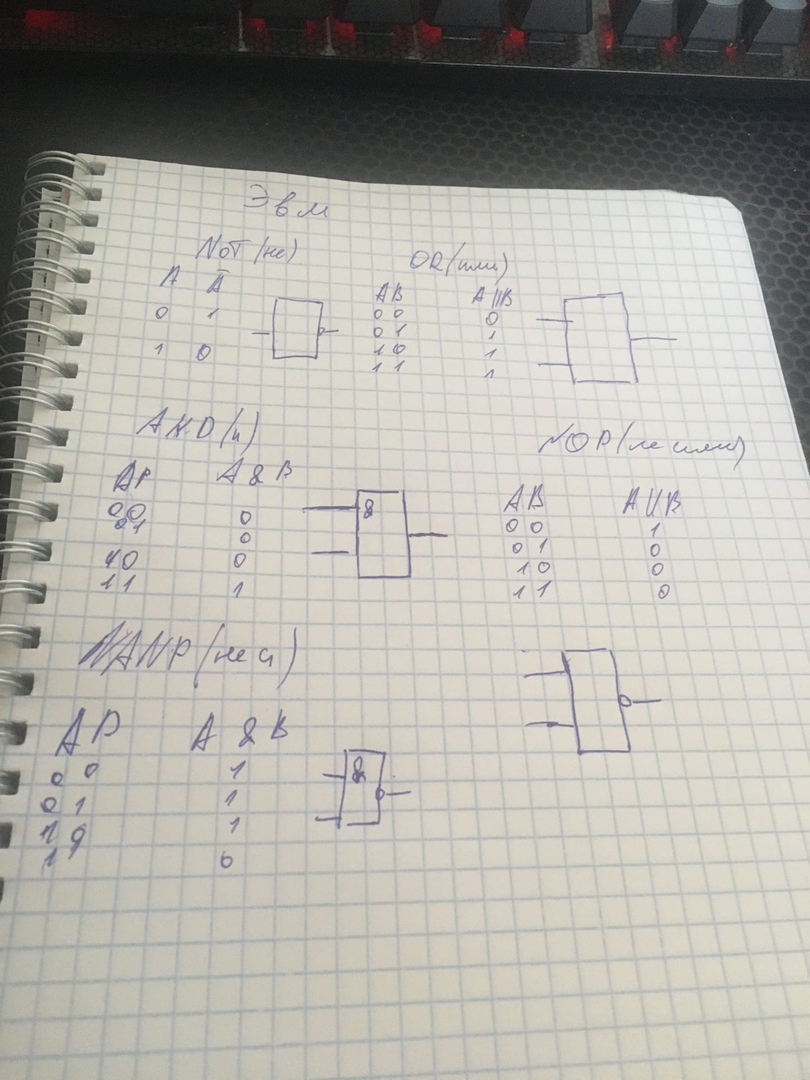 Эвм
NOT (не)
A Ā
0 1
1 0
OR (или)
AB A||B
00 0
01 1
10 1
11 1
AND (и)
AB A & B
00 0
01 0
10 0
11 1
&
NOR (не или)
AB A||B
00 1
01 0
10 0
11 0
NAND (не и)
AB A & B
00 1
01 1
10 1
1 0
&